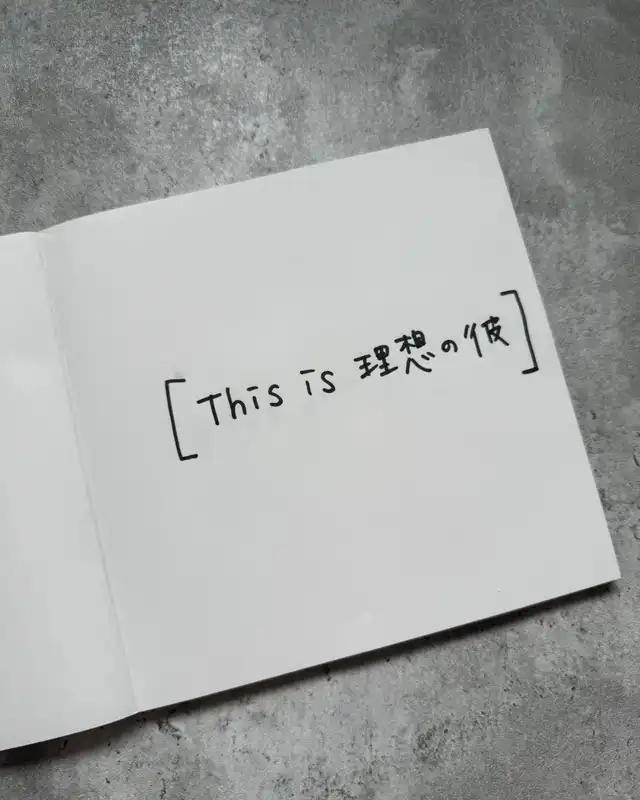 [This is 理想の彼]